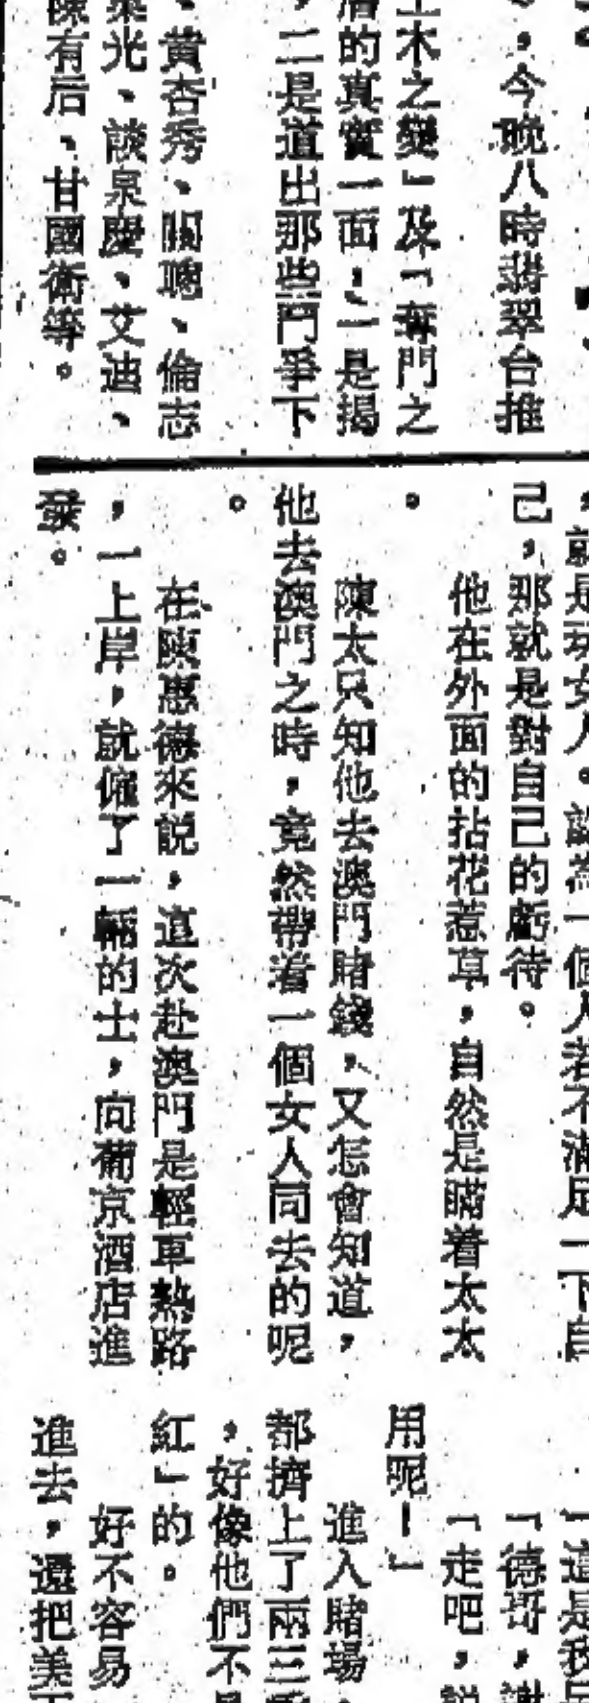 ，今晚八時翡翠台推
土木之變」及「奪門之
的真實一面；一是揭
，二是道出那些鬥爭下
、黃杏秀、關聰、倫志
光、談泉慶、艾迪、
陳有后、甘國衛等。
，就是玩女人。認為一個人若不滿足一下自
己，那就是對自己的虧待。
他在外面的拈花惹草，自然是瞞着太太
。
陳太只知他去澳門賭錢，又怎會知道，
他去澳門之時，竟然帶着一個女人同去的呢
。
在陳惠德來說，這次赴澳門是輕車熟路
，一上岸，就僱了一輛的士，向葡京酒店進
發。
「這是我
「德哥，謝
「走吧，說
用呢！」
進入賭場，
都擠上了兩三
，好像他們不
紅」的。
好不容易
進去，還把美